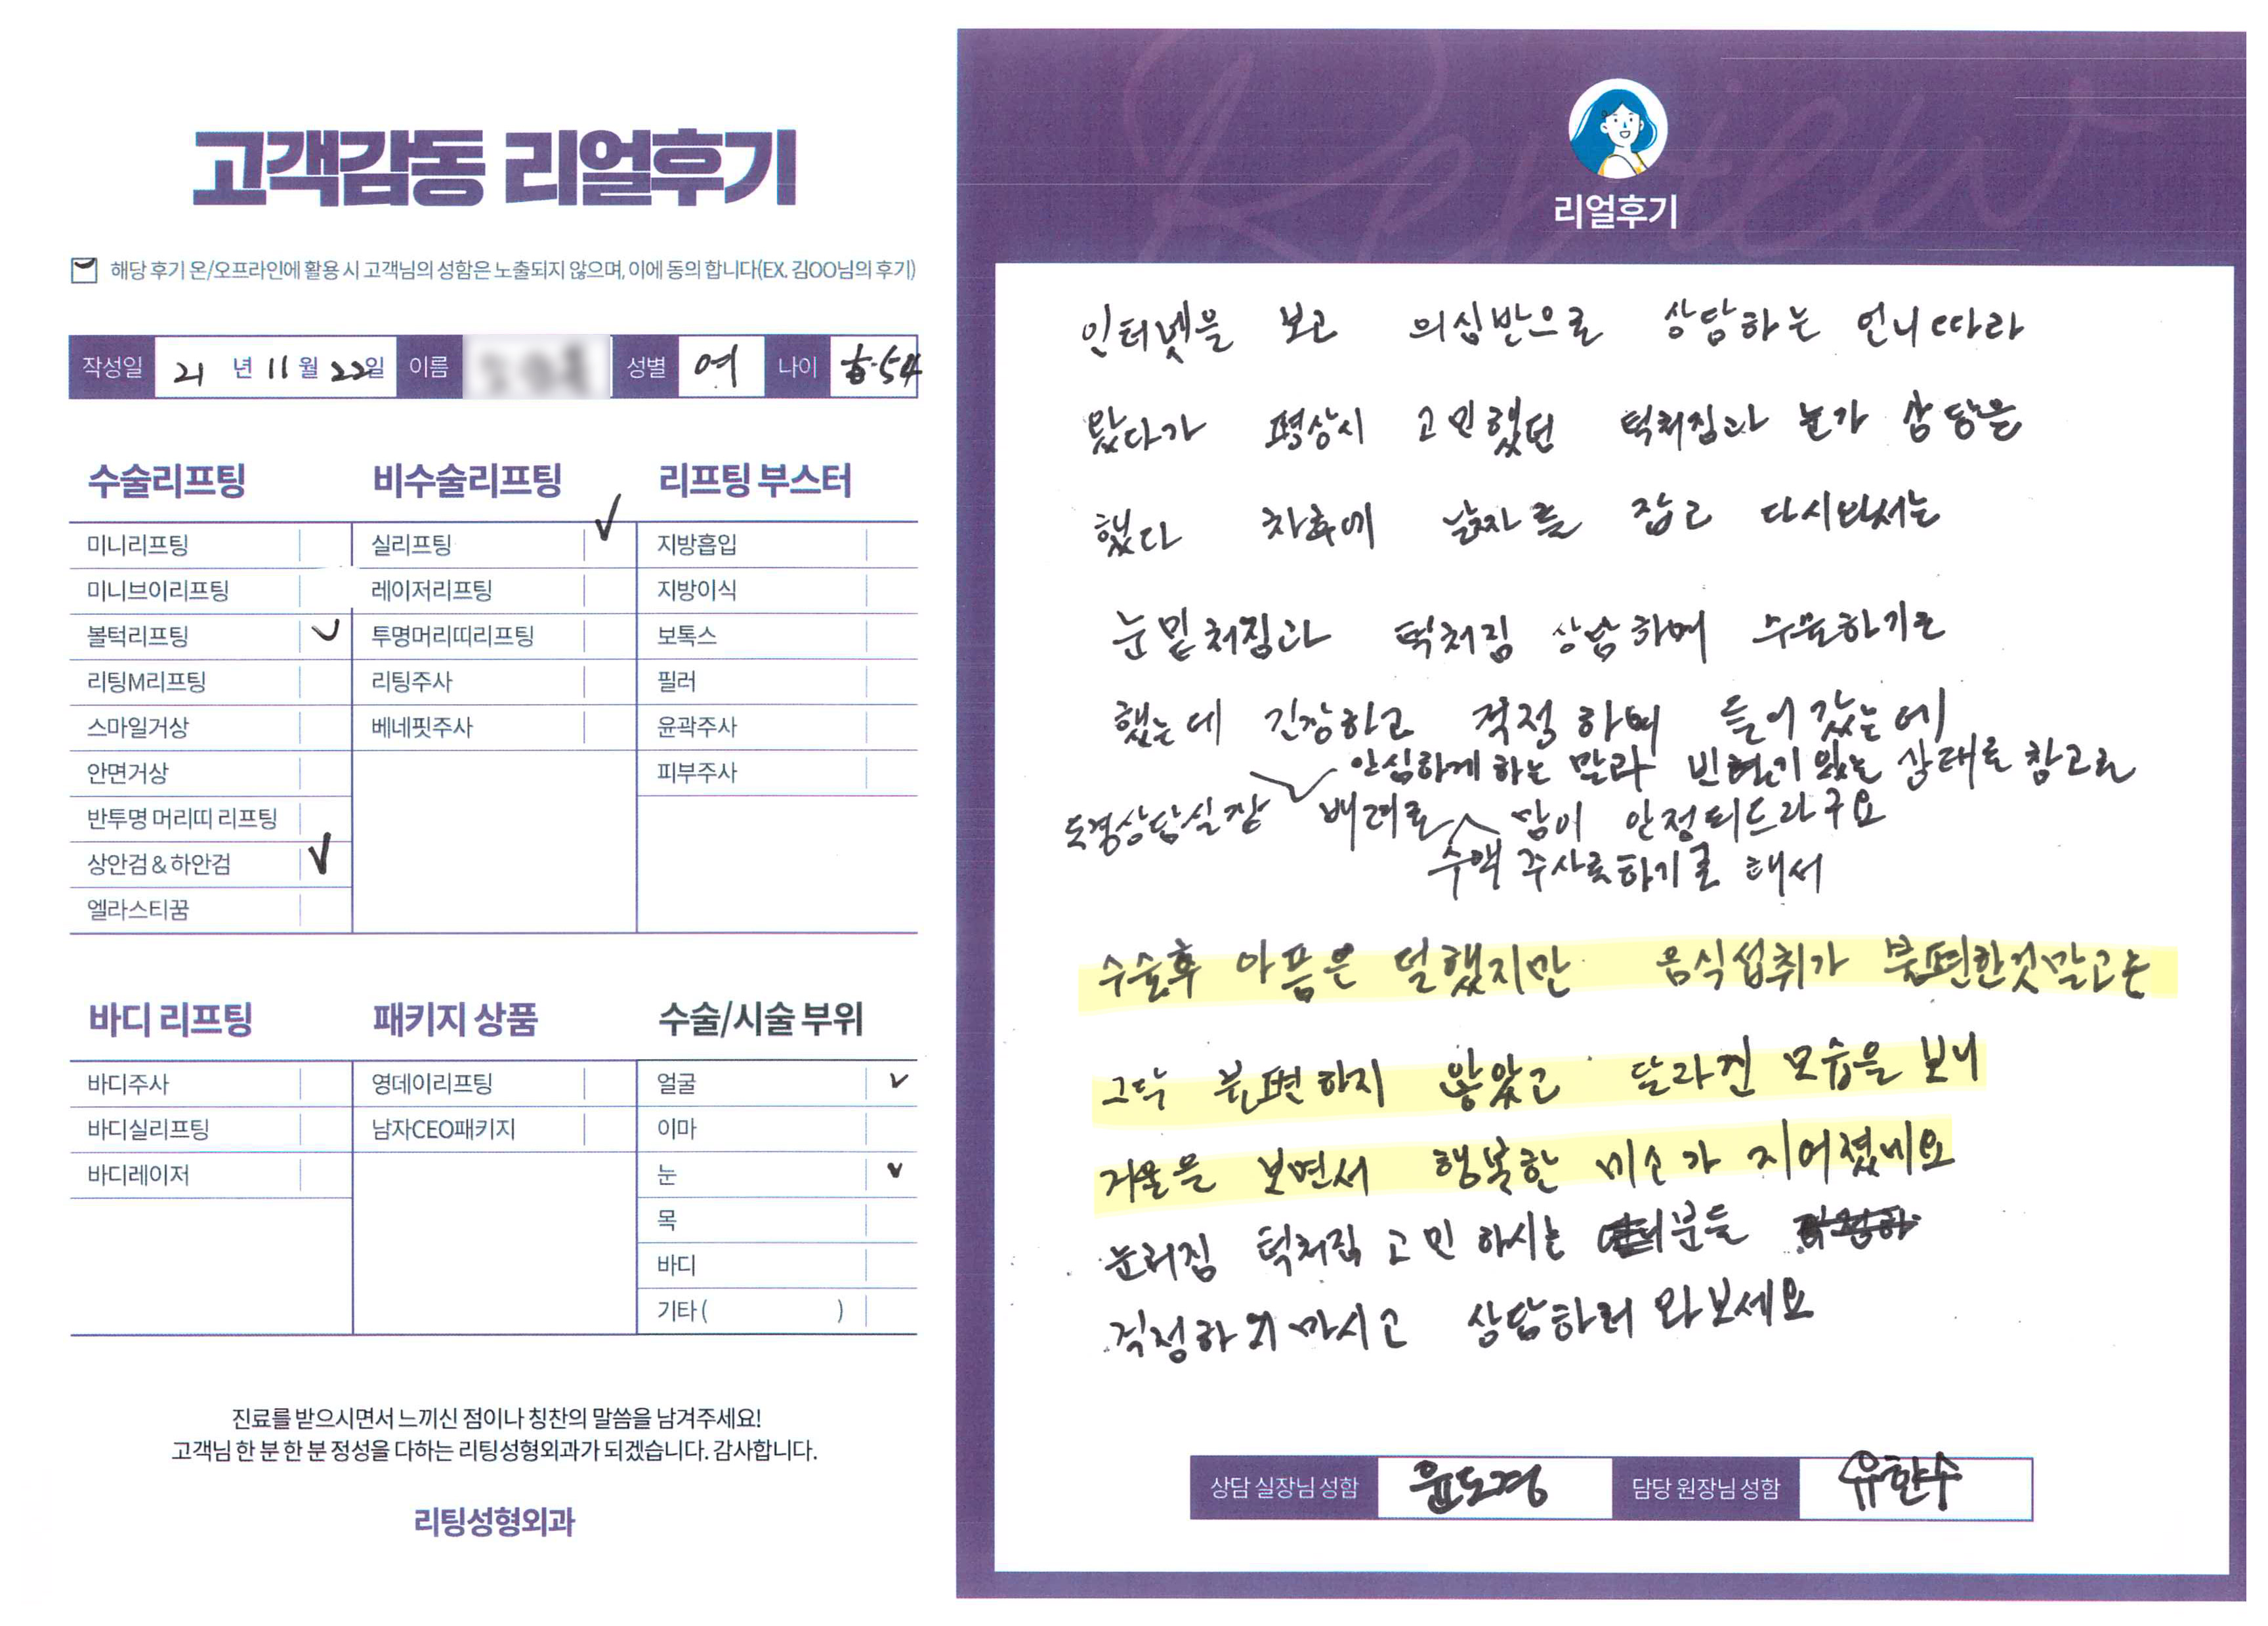 고객감동 리얼후기
해당 후기 온/오프라인에 활용 시 고객님의 성함은 노출되지 않으며, 이에 동의 합니다(EX. 김OO님의 후기)
작성일 21 년 11 월 22일 이름 성별 여 나이 54
수술리프팅
미니리프팅
미니브이리프팅
볼턱리프팅
리팅M리프팅
스마일거상
안면거상
반투명 머리띠 리프팅
상안검 & 하안검
엘라스티꿈
비수술리프팅
실리프팅
레이저리프팅
투명머리띠리프팅
리팅주사
베네핏주사
리프팅 부스터
지방흡입
지방이식
보톡스
필러
윤곽주사
피부주사
바디 리프팅
바디주사
바디실리프팅
바디레이저
패키지 상품
영데이리프팅
남자CEO패키지
수술/시술 부위
얼굴
이마
눈
목
바디
기타 ( )
진료를 받으시면서 느끼신 점이나 칭찬의 말씀을 남겨주세요!
고객님 한 분 한 분 정성을 다하는 리팅성형외과가 되겠습니다. 감사합니다.
리팅성형외과
Review
리얼후기
인터넷을 보고 의심반으로 상담하는 언니따라
왔다가 평상시 고민했던 턱처짐과 눈가 상담은
했다 차후에 날자를 잡고 다시와서는
눈밑처짐과 턱처짐 상담하며 수술하기로
했는데 긴장하고 걱정하며 들어갔는데
안심하게 하는 말과 빈혈기 있는 상태로 참고로
도경상담실장 배려로 맘이 안정되드라구요
수액 주사로하기로 해서
수술후 아픔은 덜했지만 음식섭취가 불편한것말고는
그닥 불편하지 않았고 달라진 모습을 보니
거울을 보면서 행복한 미소가 지어졌네요
눈처짐 턱처짐 고민하시는 분들
걱정하지마시고 상담하러 와보세요
상담 실장님 성함 윤도경 담당 원장님 성함 유한수